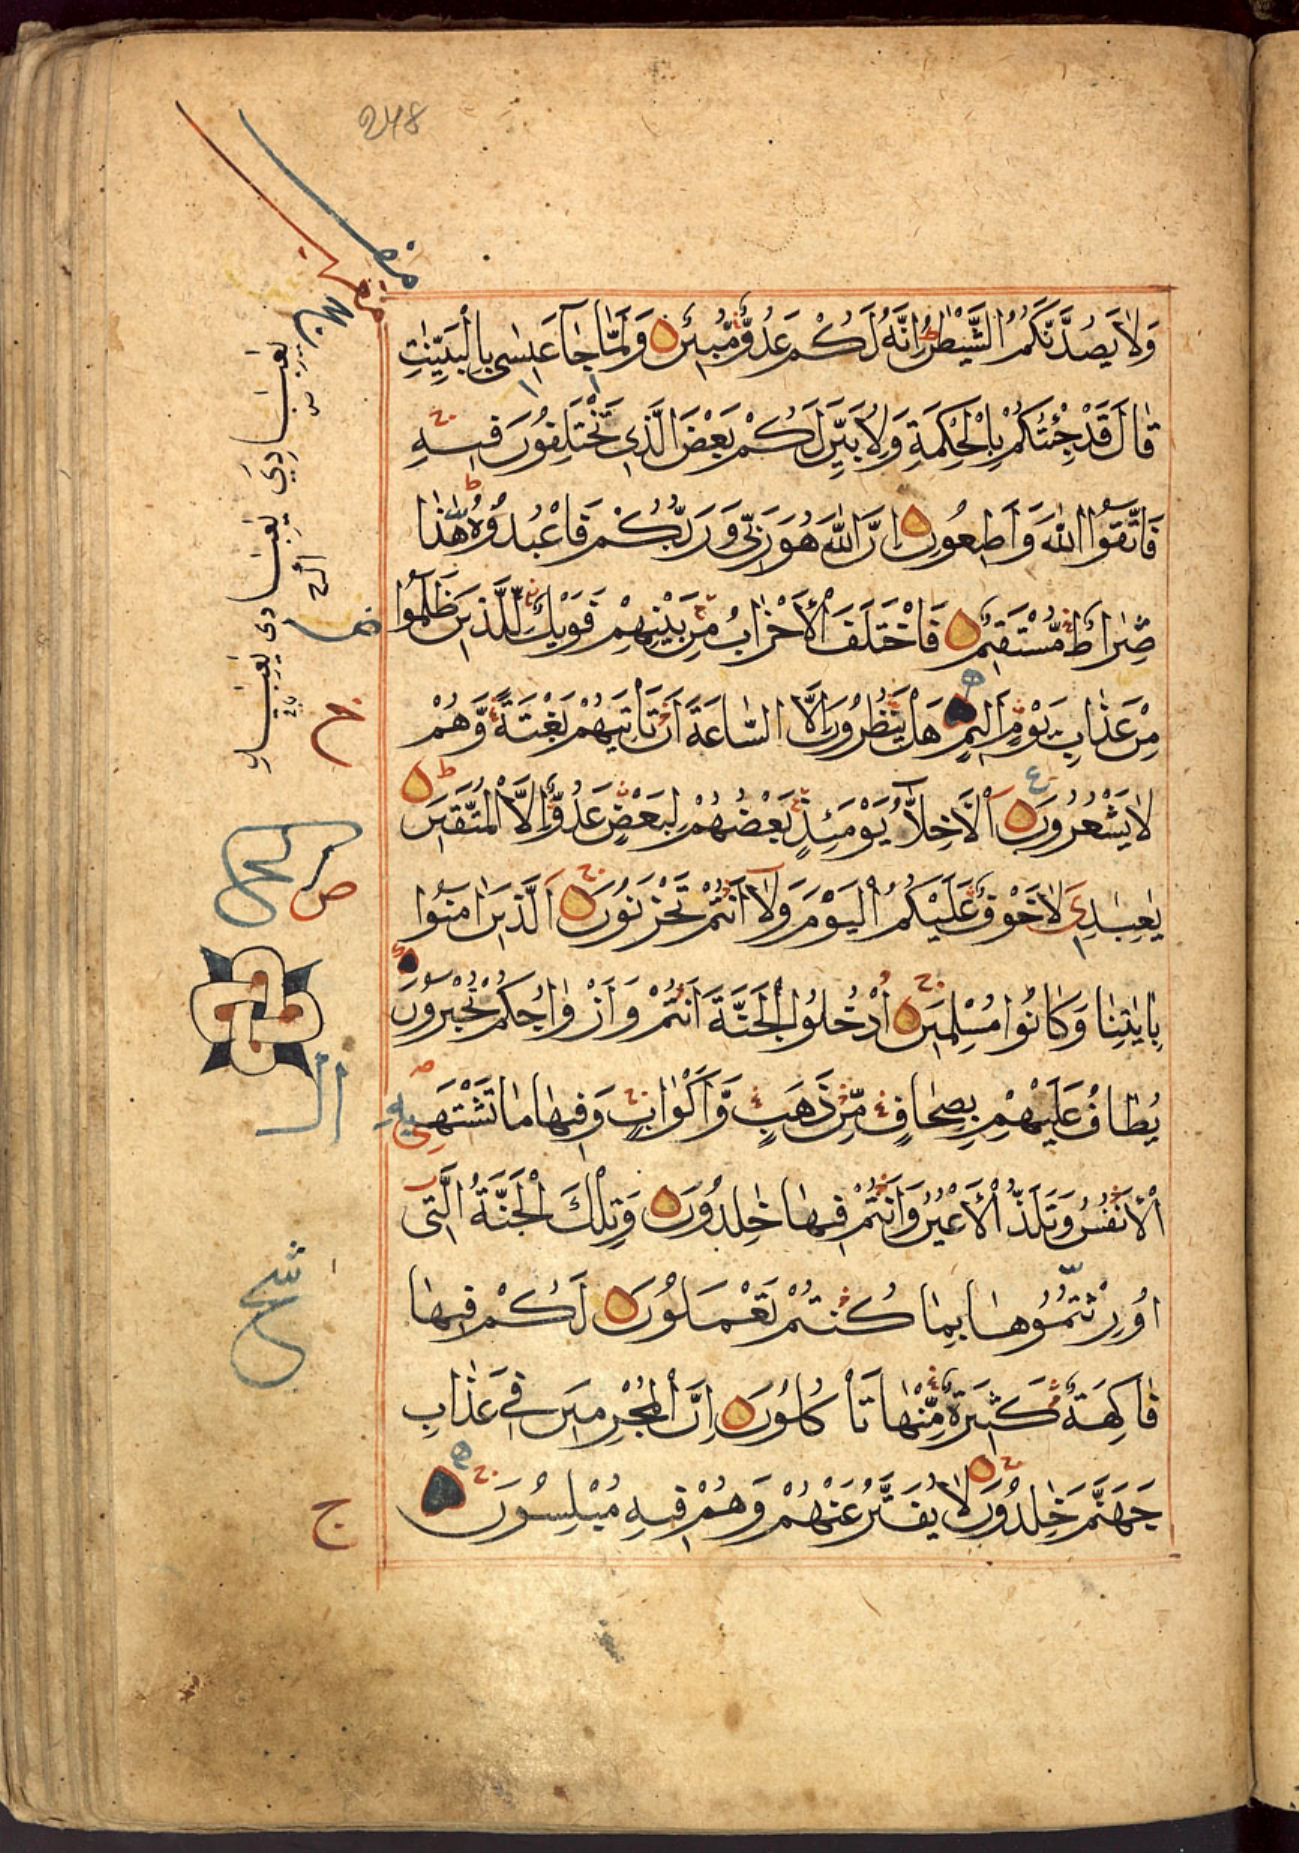 248
وَلَا يَصُدَّنَّكُمُ الشَّيْطٰنُ اِنَّهُ لَكُمْ عَدُوٌّ مُّبِينٌ وَلَمَّا جَآءَ عِيسٰى بِالْبَيِّنٰتِ
قَالَ قَدْ جِئْتُكُمْ بِالْحِكْمَةِ وَلِاُبَيِّنَ لَكُمْ بَعْضَ الَّذِى تَخْتَلِفُونَ فِيهِ
فَاتَّقُوا اللّٰهَ وَاَطِيعُونِ اِنَّ اللّٰهَ هُوَ رَبِّى وَرَبُّكُمْ فَاعْبُدُوهُ هٰذَا
صِرَاطٌ مُّسْتَقِيمٌ فَاخْتَلَفَ الْاَحْزَابُ مِنْ بَيْنِهِمْ فَوَيْلٌ لِّلَّذِينَ ظَلَمُوا
مِنْ عَذَابِ يَوْمٍ اَلِيمٍ هَلْ يَنْظُرُونَ اِلَّا السَّاعَةَ اَنْ تَاْتِيَهُمْ بَغْتَةً وَّهُمْ
لَا يَشْعُرُونَ اَلْاَخِلَّآءُ يَوْمَئِذٍ بَعْضُهُمْ لِبَعْضٍ عَدُوٌّ اِلَّا الْمُتَّقِينَ
يٰعِبَادِى لَا خَوْفٌ عَلَيْكُمُ الْيَوْمَ وَلَآ اَنْتُمْ تَحْزَنُونَ اَلَّذِينَ اٰمَنُوا
بِاٰيٰتِنَا وَكَانُوا مُسْلِمِينَ اُدْخُلُوا الْجَنَّةَ اَنْتُمْ وَاَزْوَاجُكُمْ تُحْبَرُونَ
يُطَافُ عَلَيْهِمْ بِصِحَافٍ مِّنْ ذَهَبٍ وَّاَكْوَابٍ وَفِيهَا مَا تَشْتَهِيهِ
الْاَنْفُسُ وَتَلَذُّ الْاَعْيُنُ وَاَنْتُمْ فِيهَا خٰلِدُونَ وَتِلْكَ الْجَنَّةُ الَّتِى
اُورِثْتُمُوهَا بِمَا كُنْتُمْ تَعْمَلُونَ لَكُمْ فِيهَا
فَاكِهَةٌ كَثِيرَةٌ مِّنْهَا تَاْكُلُونَ اِنَّ الْمُجْرِمِينَ فِى عَذَابِ
جَهَنَّمَ خٰلِدُونَ لَا يُفَتَّرُ عَنْهُمْ وَهُمْ فِيهِ مُبْلِسُونَ